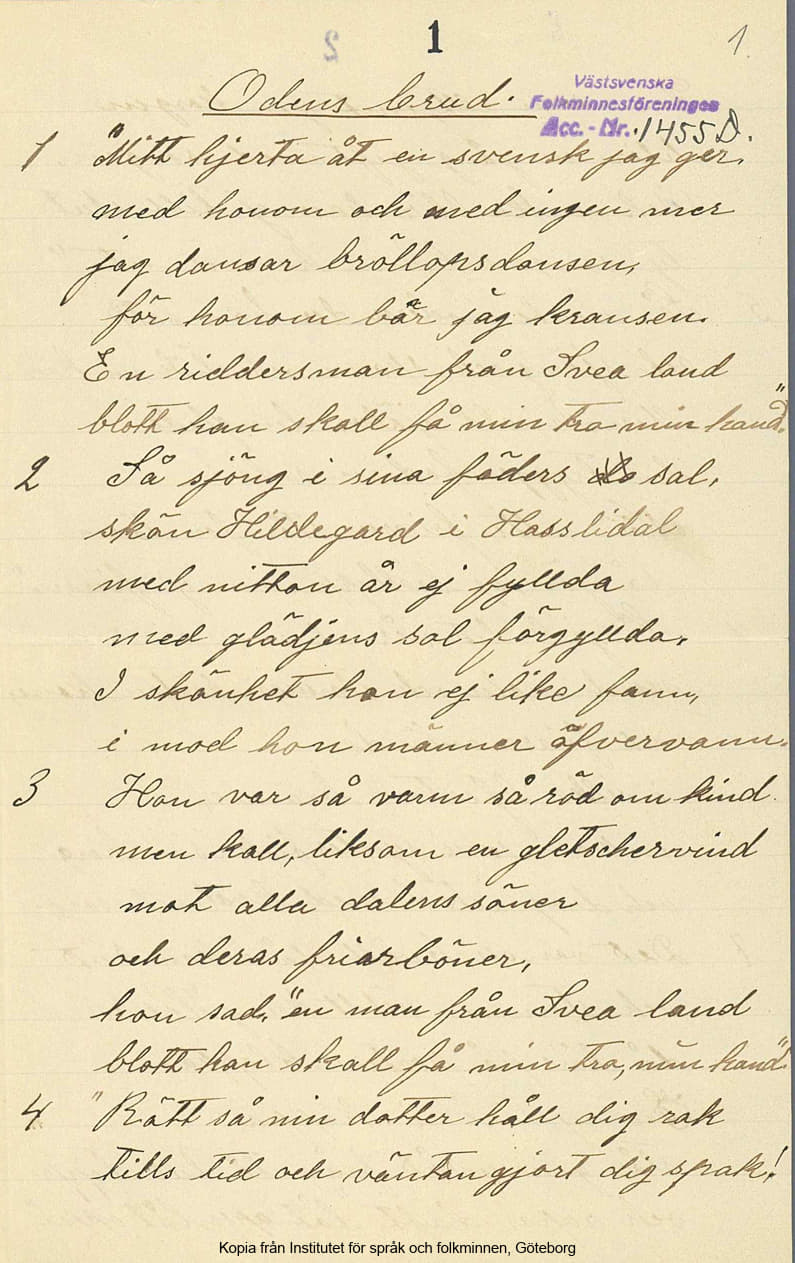 1
1
Odens brud.
Västsvenska
Folkminnesföreningen
Acc.-Nr. 1455 D.
1 "Mitt hjerta åt en svensk jag ger,
med honom och med ingen mer
jag dansar bröllopsdansen,
för honom bär jag kransen.
En riddersman från Svea land
blott han skall få min tro min hand".
2 Så sjöng i sina fäders sal,
skön Hildegard i Hasslidal
med nitton år ej fyllda
med glädjens sol förgyllda.
I skönhet hon ej like fann,
i mod hon männer öfvervann.
3 Hon var så varm så röd om kind
men kall, liksom en gletschervind
mot alla dalens söner
och deras friarböner,
hon sad, "en man från Svea land
blott han skall få min tro, min hand".
4 "Rätt så min dotter håll dig rak
tills tid och väntan gjort dig spak!
Kopia från Institutet för språk och folkminnen, Göteborg